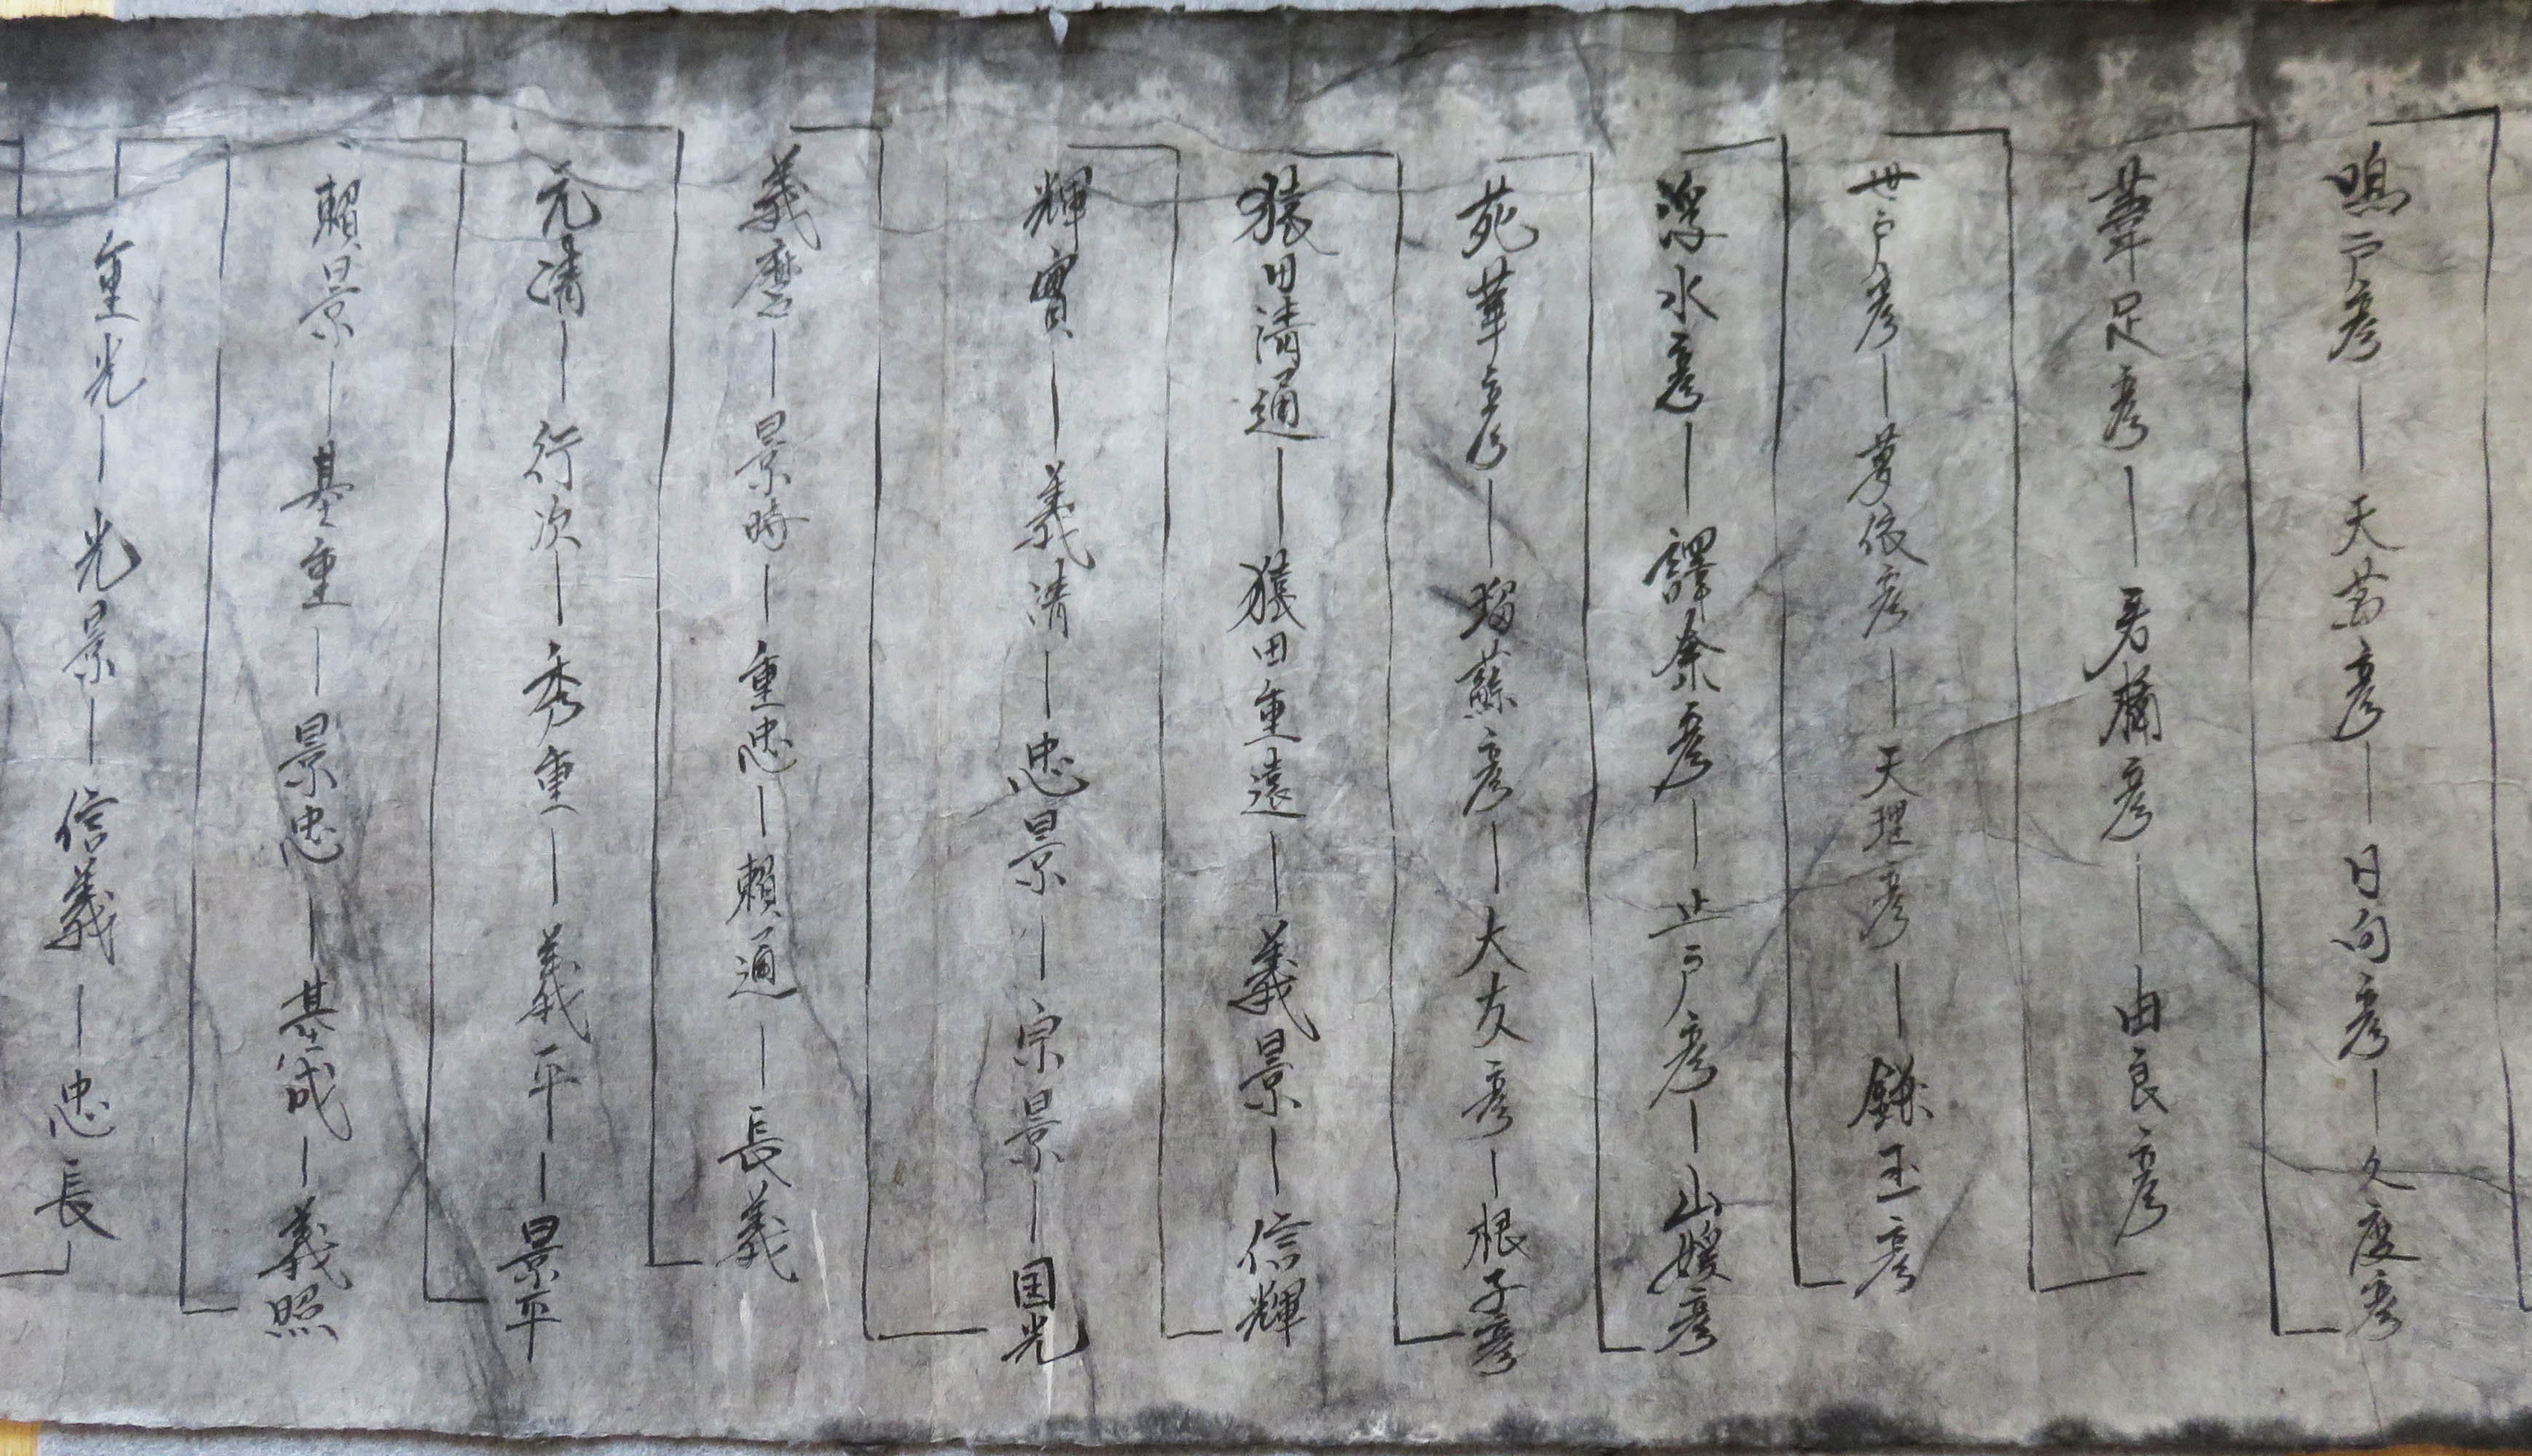 鳴戸彦 天萬彦 日向彦 久度彦
葦足彦 彦 由良彦
世戸彦 夢依彦 天理彦 鎌玉彦
浮水彦 譯奈彦 止戸彦 山媛彦
苑華彦 瑠蘇彦 大友彦 根子彦
猿田清通 猿田重遠 義景 信輝
輝實 義清 忠景 宗景 国光
義麿 景時 重忠 頼通 長義
元清 行次 秀重 義平 景平
頼景 基重 景忠 基成 義照
重光 光景 信義 忠長